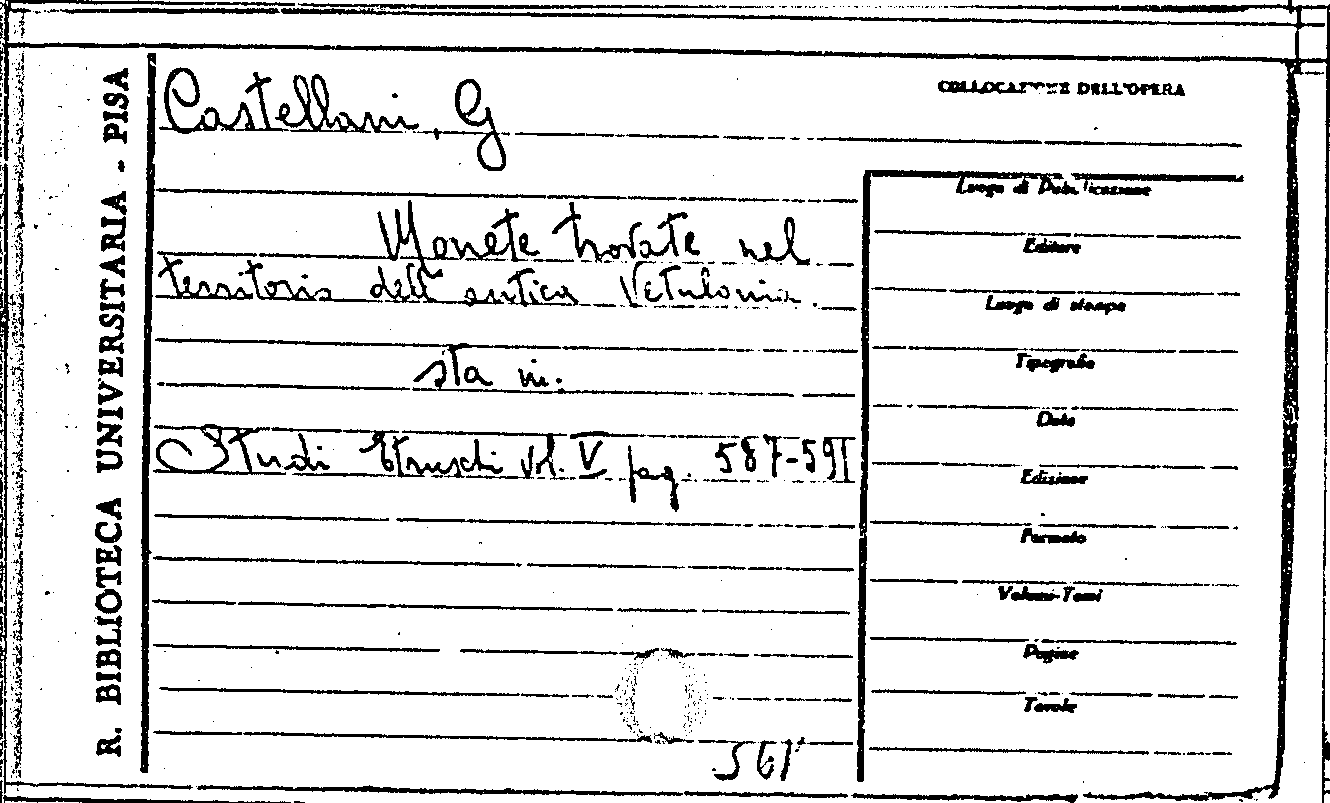 R. BIBLIOTECA UNIVERSITARIA - PISA
Castellani, G
COLLOCAZIONE DELL'OPERA
Monete trovate nel
territorio dell'antica Vetulonia.
sta in:
Studi Etruschi vol. V pag. 587-591
Luogo di Pubblicazione
Editore
Luogo di stampa
Tipografia
Data
Edizione
Formato
Volumi-Tomi
Pagine
Tavole